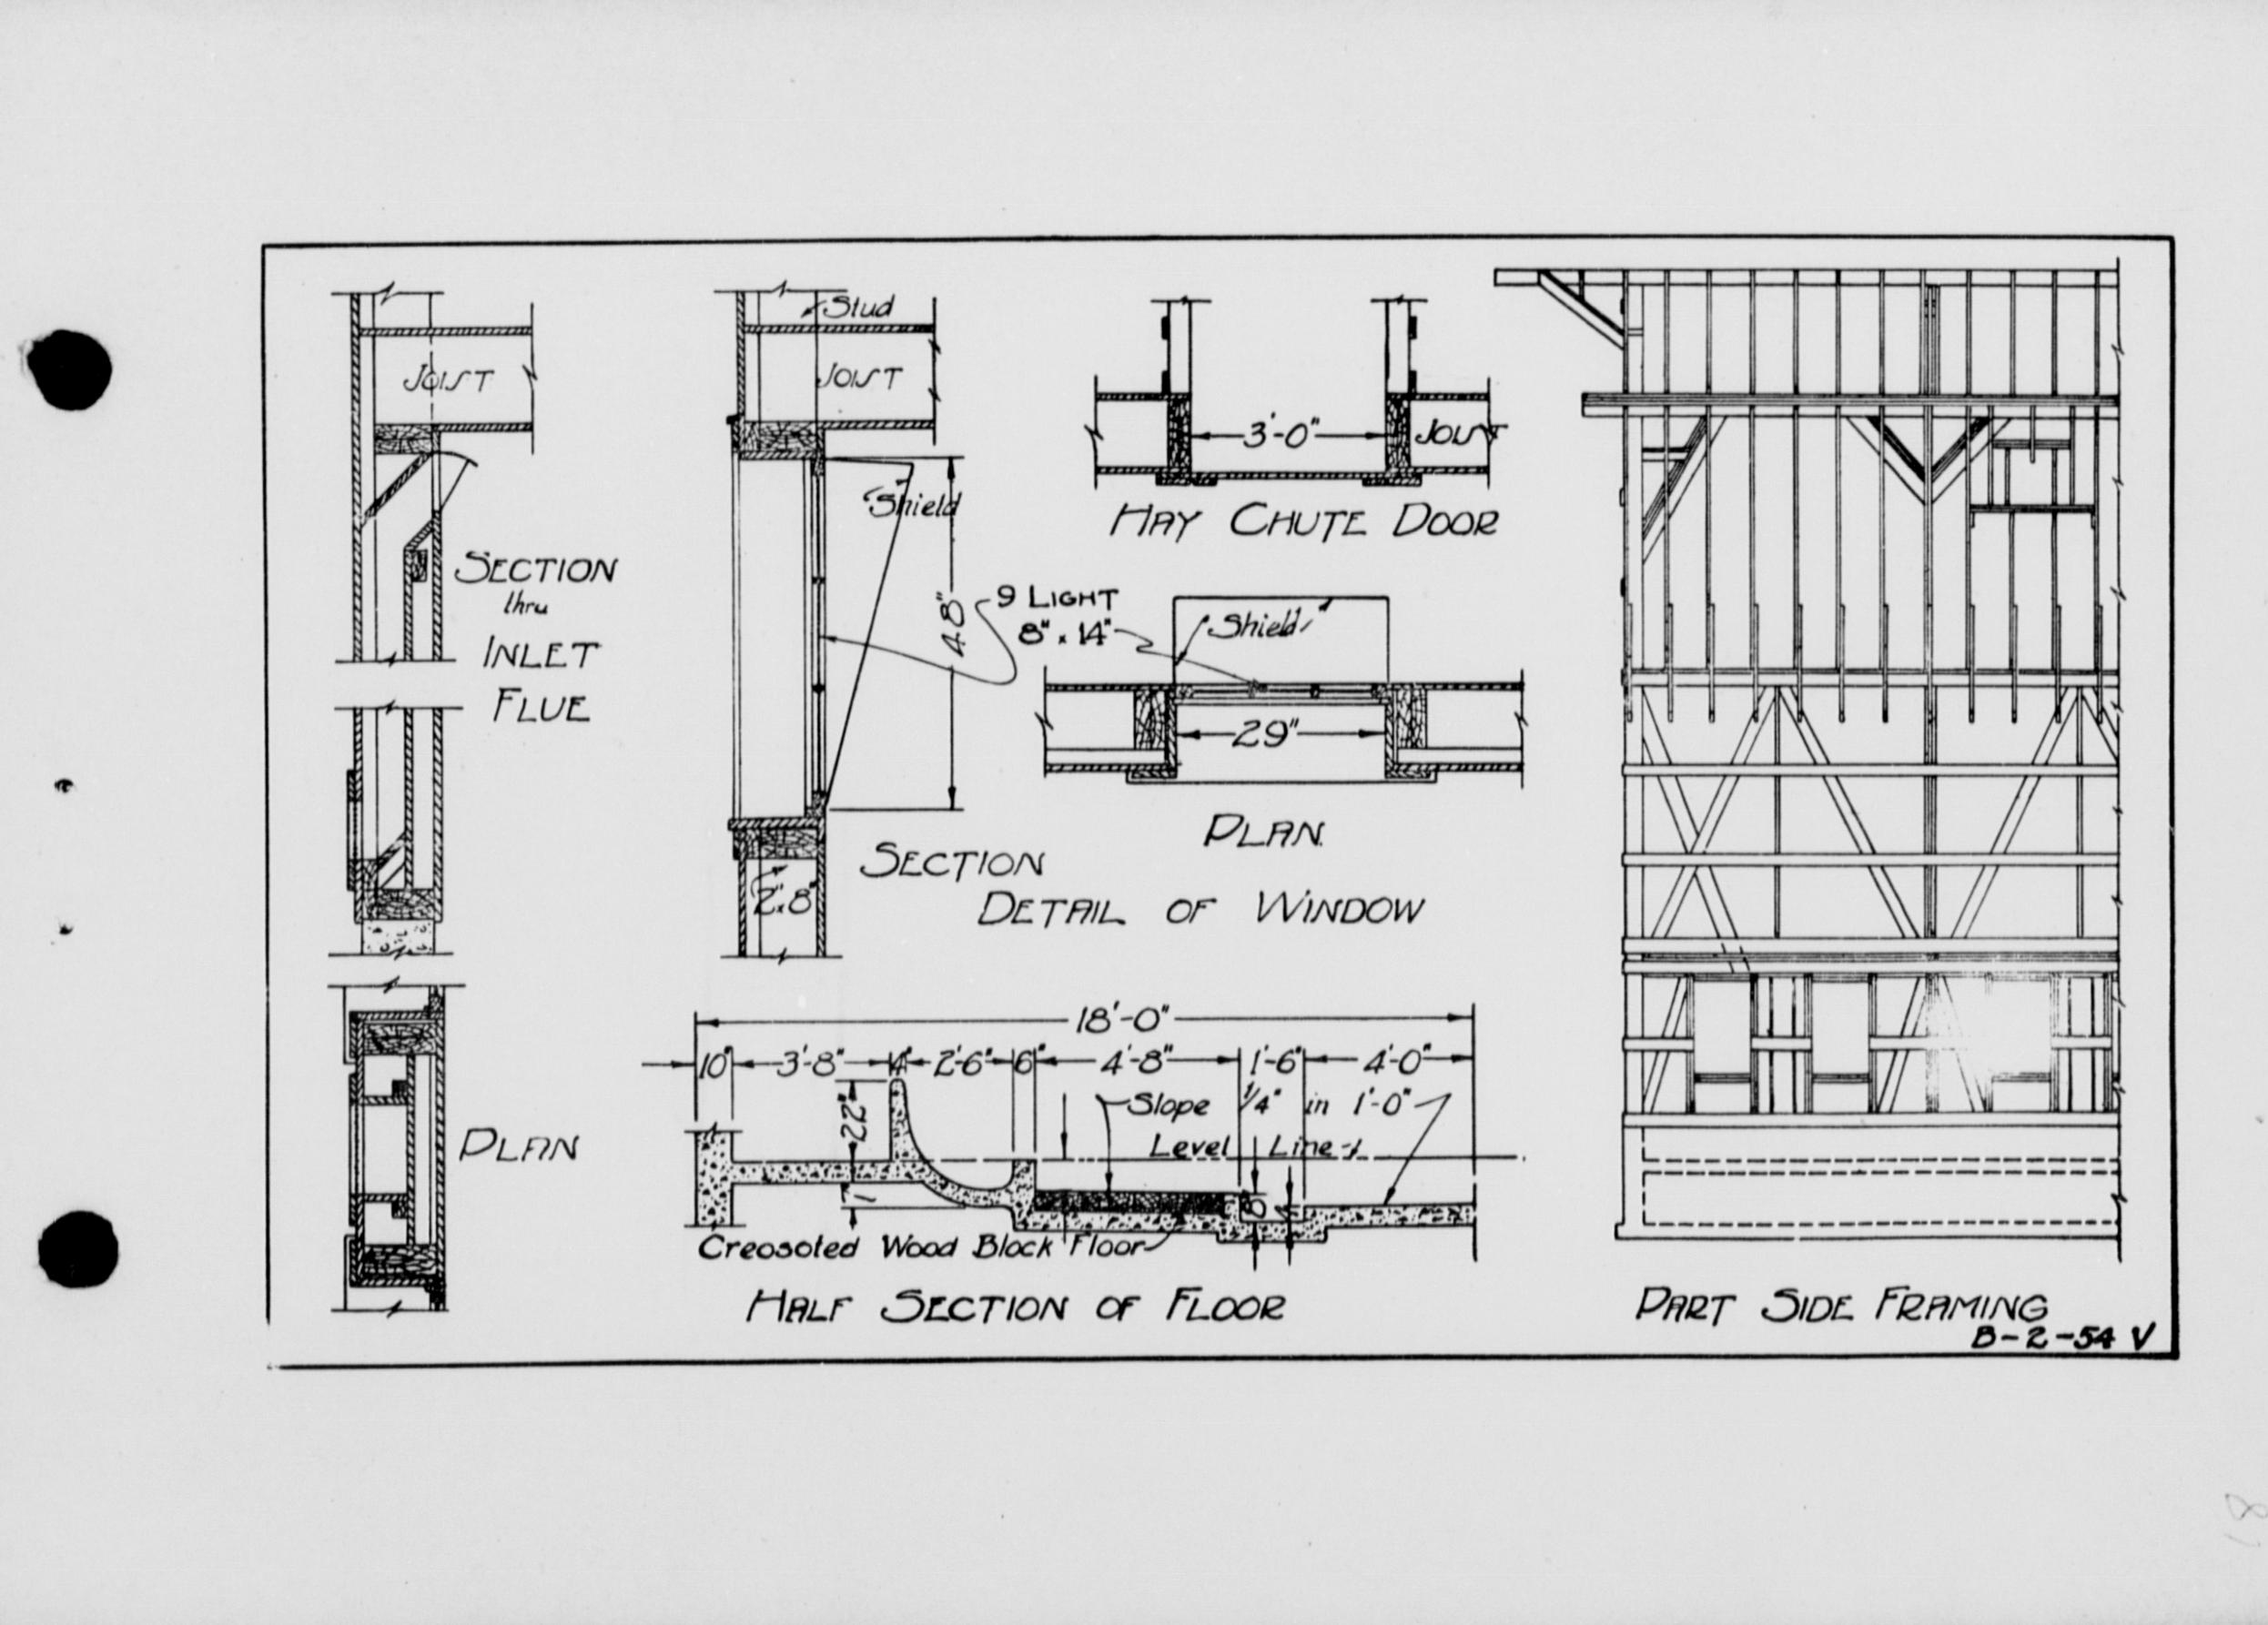 JOIST
SECTION
thru
INLET
FLUE
PLAN
Stud
JOIST
Shield
48"
2"x8"
SECTION
9 LIGHT
8" x 14"
Shield
29"
PLAN.
DETAIL OF WINDOW
3'-0"
JOIST
HAY CHUTE DOOR
18'-0"
10" 3'-8" 4" 2'-6" 6" 4'-8" 1'-6" 4'-0"
22"
Slope 1/4" in 1'-0"
Level Line
1
8"
4
Creosoted Wood Block Floor
HALF SECTION OF FLOOR
PART SIDE FRAMING
B-2-54 V
18